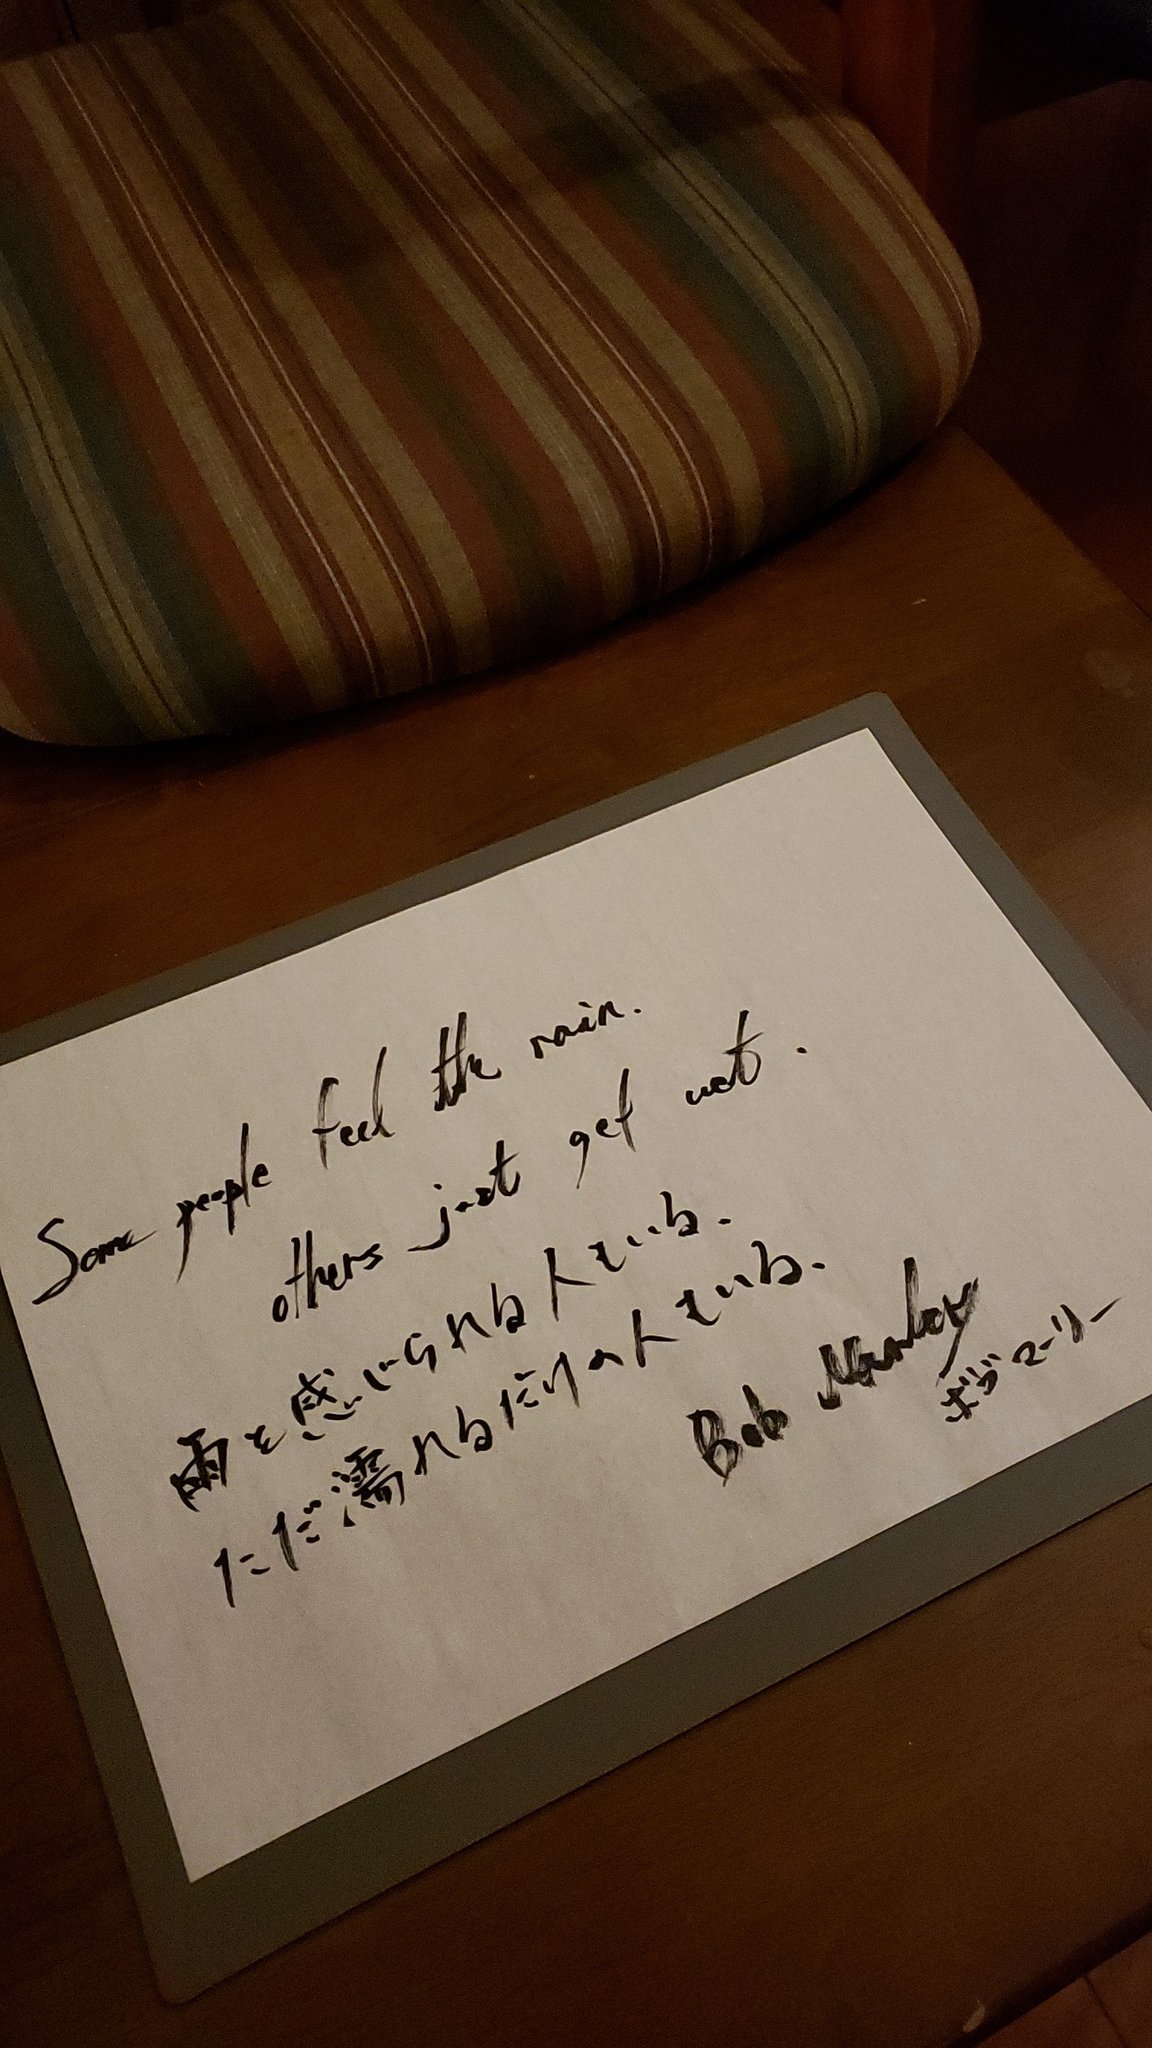 Some people feel the rain.
others just get wet.
雨を感じられる人もいる.
ただ濡れるだけの人もいる.
Bob Marley
ボブマーリー